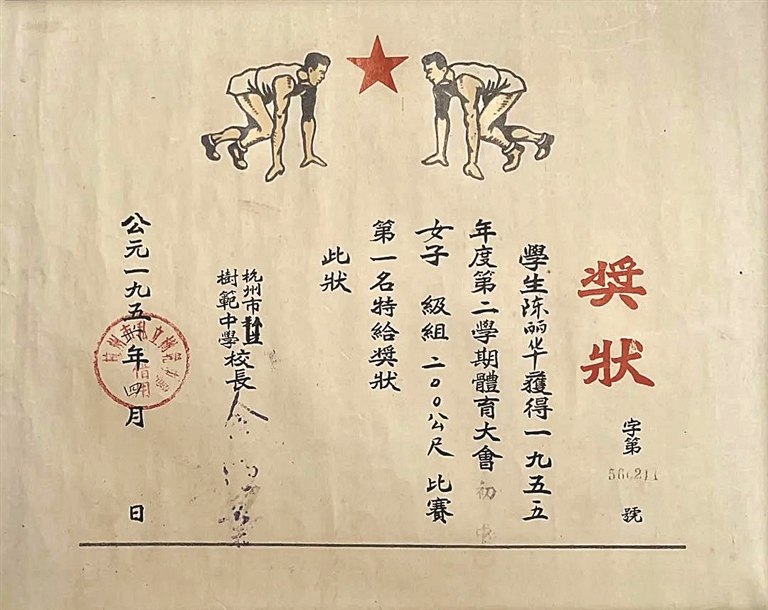 獎狀
字第 560211 號
學生陈丽华獲得一九五五
年度第二學期體育大會 初中
女子 級組 二〇〇公尺 比賽
第一名特給獎狀
此狀
杭州市私立
樹範中學校長
公元一九五六年四月 日